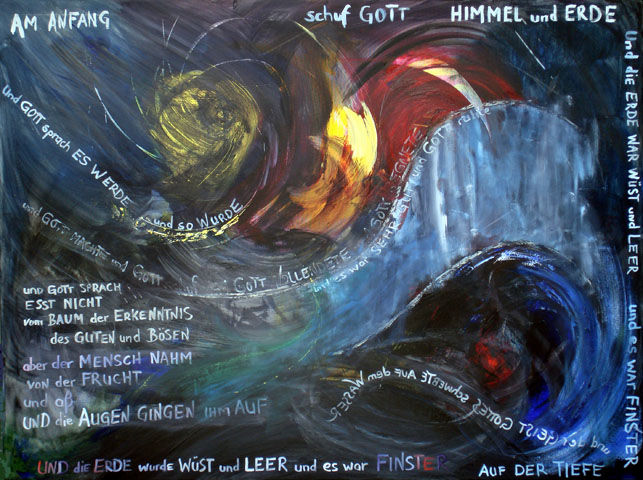 AM ANFANG schuf GOTT HIMMEL und ERDE
Und die ERDE WAR WÜST und LEER und es war FINSTER
AUF DER TIEFE
und der GEIST GOTTES SCHWEBTE AUF dem WASSER
Und GOTT sprach ES WERDE und so WURDE
und GOTT MACHTE und GOTT
GOTT VOLLENDETE
GOTT SEGNETE
und es war SEHR GUT und GOTT ruhte
und GOTT SPRACH
ESST NICHT
vom BAUM der ERKENNTNIS
des GUTEN und BÖSEN
aber der MENSCH NAHM
von der FRUCHT
und aß
UND die AUGEN GINGEN ihm AUF
UND die ERDE wurde WÜST und LEER und es war FINSTER